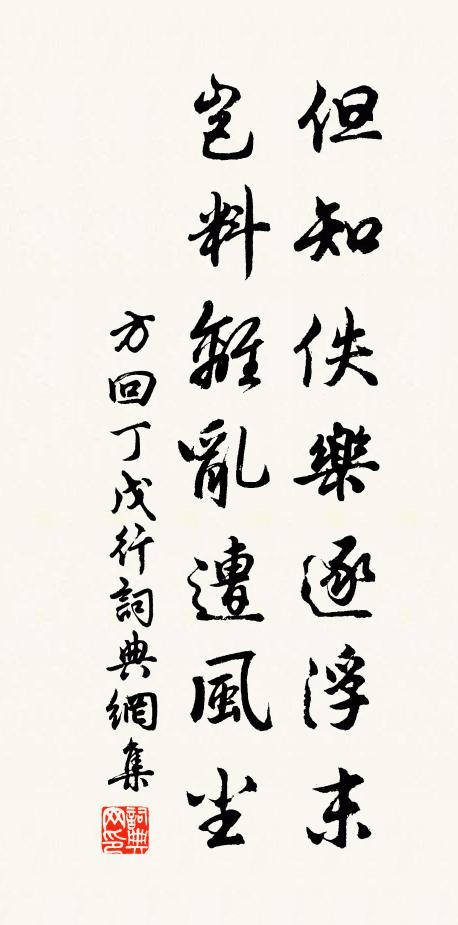 但知佚樂逐浮末
豈料離亂遭風尘
方回丁戊行詞典網集
詞典网印